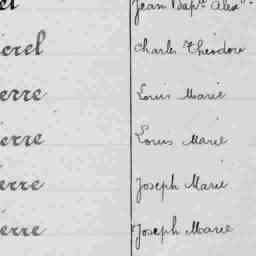 el Jean Bap.te Alex
erel Charles Théodore
erre Louis Marie
erre Louis Marie
erre Joseph Marie
erre Joseph Marie